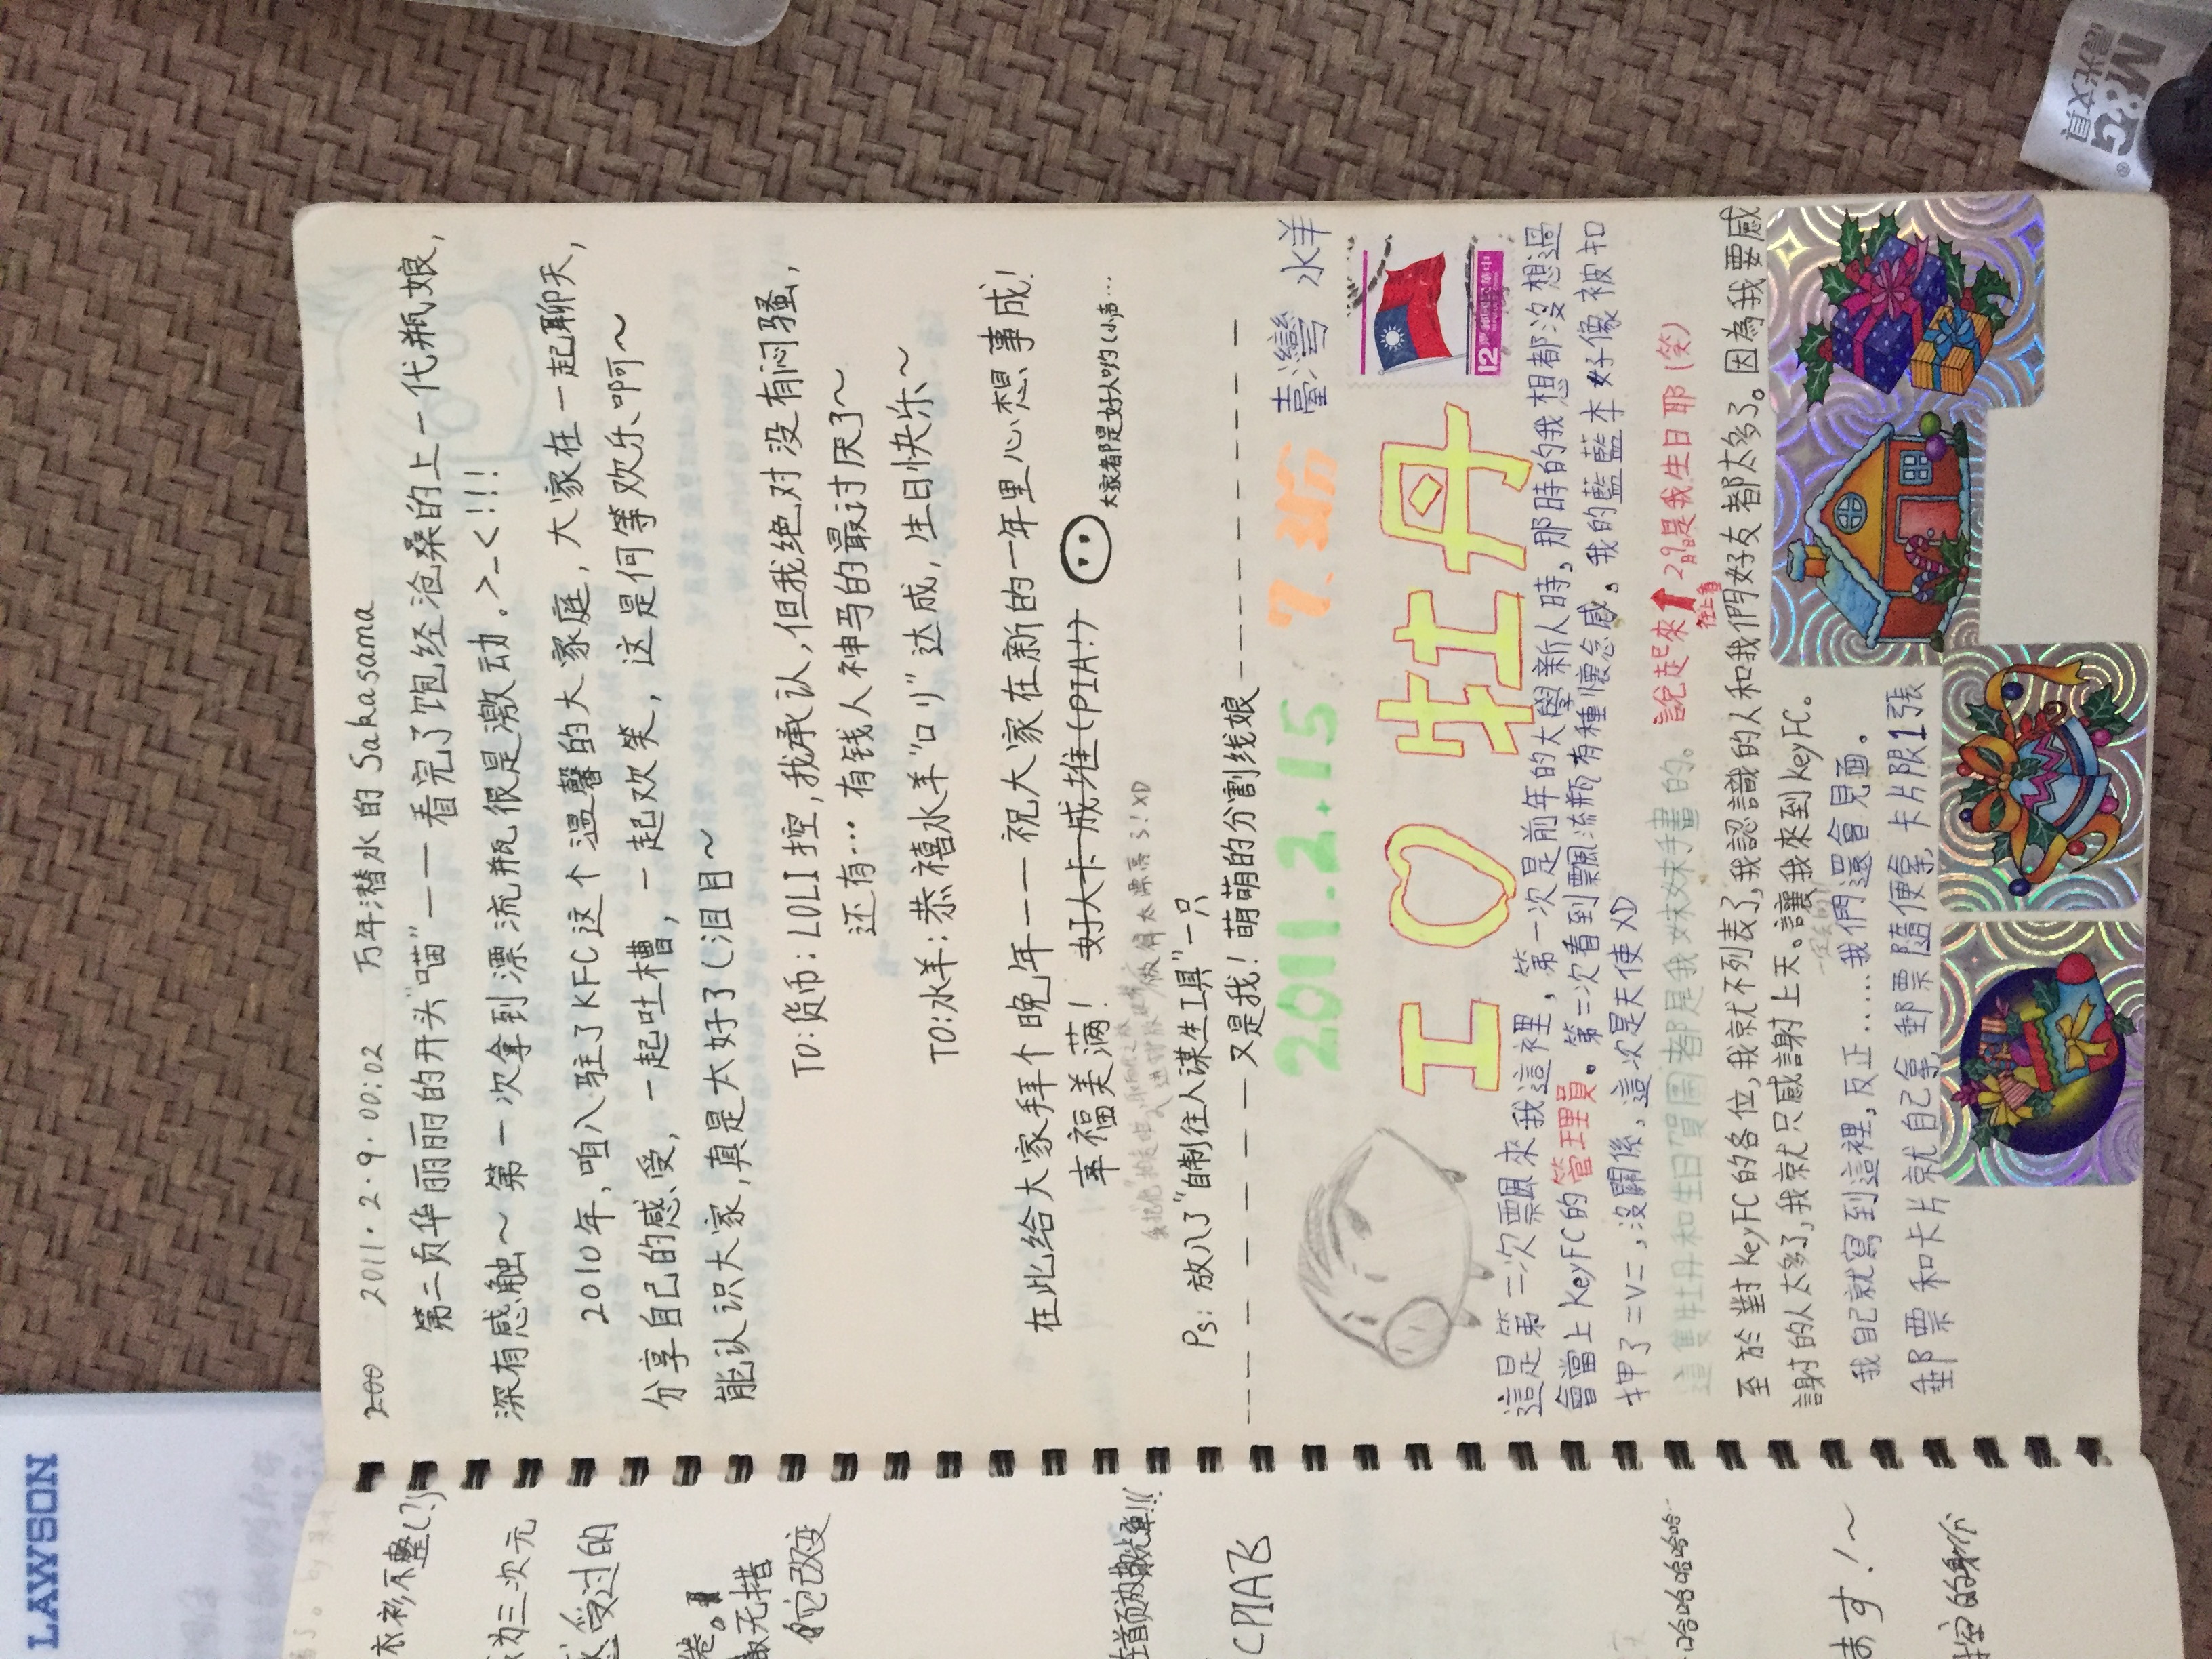 2011.2.9.00:02 万年潜水的Sakasama
第二页华丽丽的开头"喵"——看完了饱经沧桑的上一代瓶娘,
深有感触～第一次拿到漂流瓶很是激动.>_<!!!
2010年,咱入驻了KFC这个温馨的大家庭,大家在一起聊天,
分享自己的感受,一起吐槽,一起欢笑,这是何等欢乐、啊～
能认识大家,真是太好了(泪目～
TO:货币:LOLI控,我承认,但我绝对没有闷骚,
还有…有钱人神马的最讨厌了～
TO:水羊:恭禧水羊"口リ"达成,生日快乐～
在此给大家拜个晚年——祝大家在新的一年里心想事成!
幸福美满! 好人卡成堆(PIA!)
大家都是好人的(小声…
Ps:放入了"自制住人谋生工具"一只
又是我!萌萌的分割线娘
2011.2.15 臺灣 水羊
I 牡丹
12
這是第二次飄來我這裡,第一次是前年的大學新人時,那時的我想都沒想過
會當上KeyFC的管理員。第二次看到飄流瓶有種懷念感。我的藍藍本好像被扣
押了=v=,沒關係,這次是天使XD
說起來 2月9日是我生日耶(笑)
往上看
這隻牡丹和生日賀圖都是我妹妹手畫的。
至於對KeyFC的各位,我就不列表了,我認識的人和我們好友都太多了。因為我要感
謝的人太多了,我就只感謝上天。讓我來到KeyFC。
我自己就寫到這裡,反正……我們還會見面。
一定會
郵票和卡片就自己拿,郵票隨便拿,卡片限1張
衣衫不整(?)
为三次元
感受过的
卷。
无措
的它改变
CPIA飞
哈哈哈哈…
ます!～
的身份
LAWSON
M&G
晨光文具